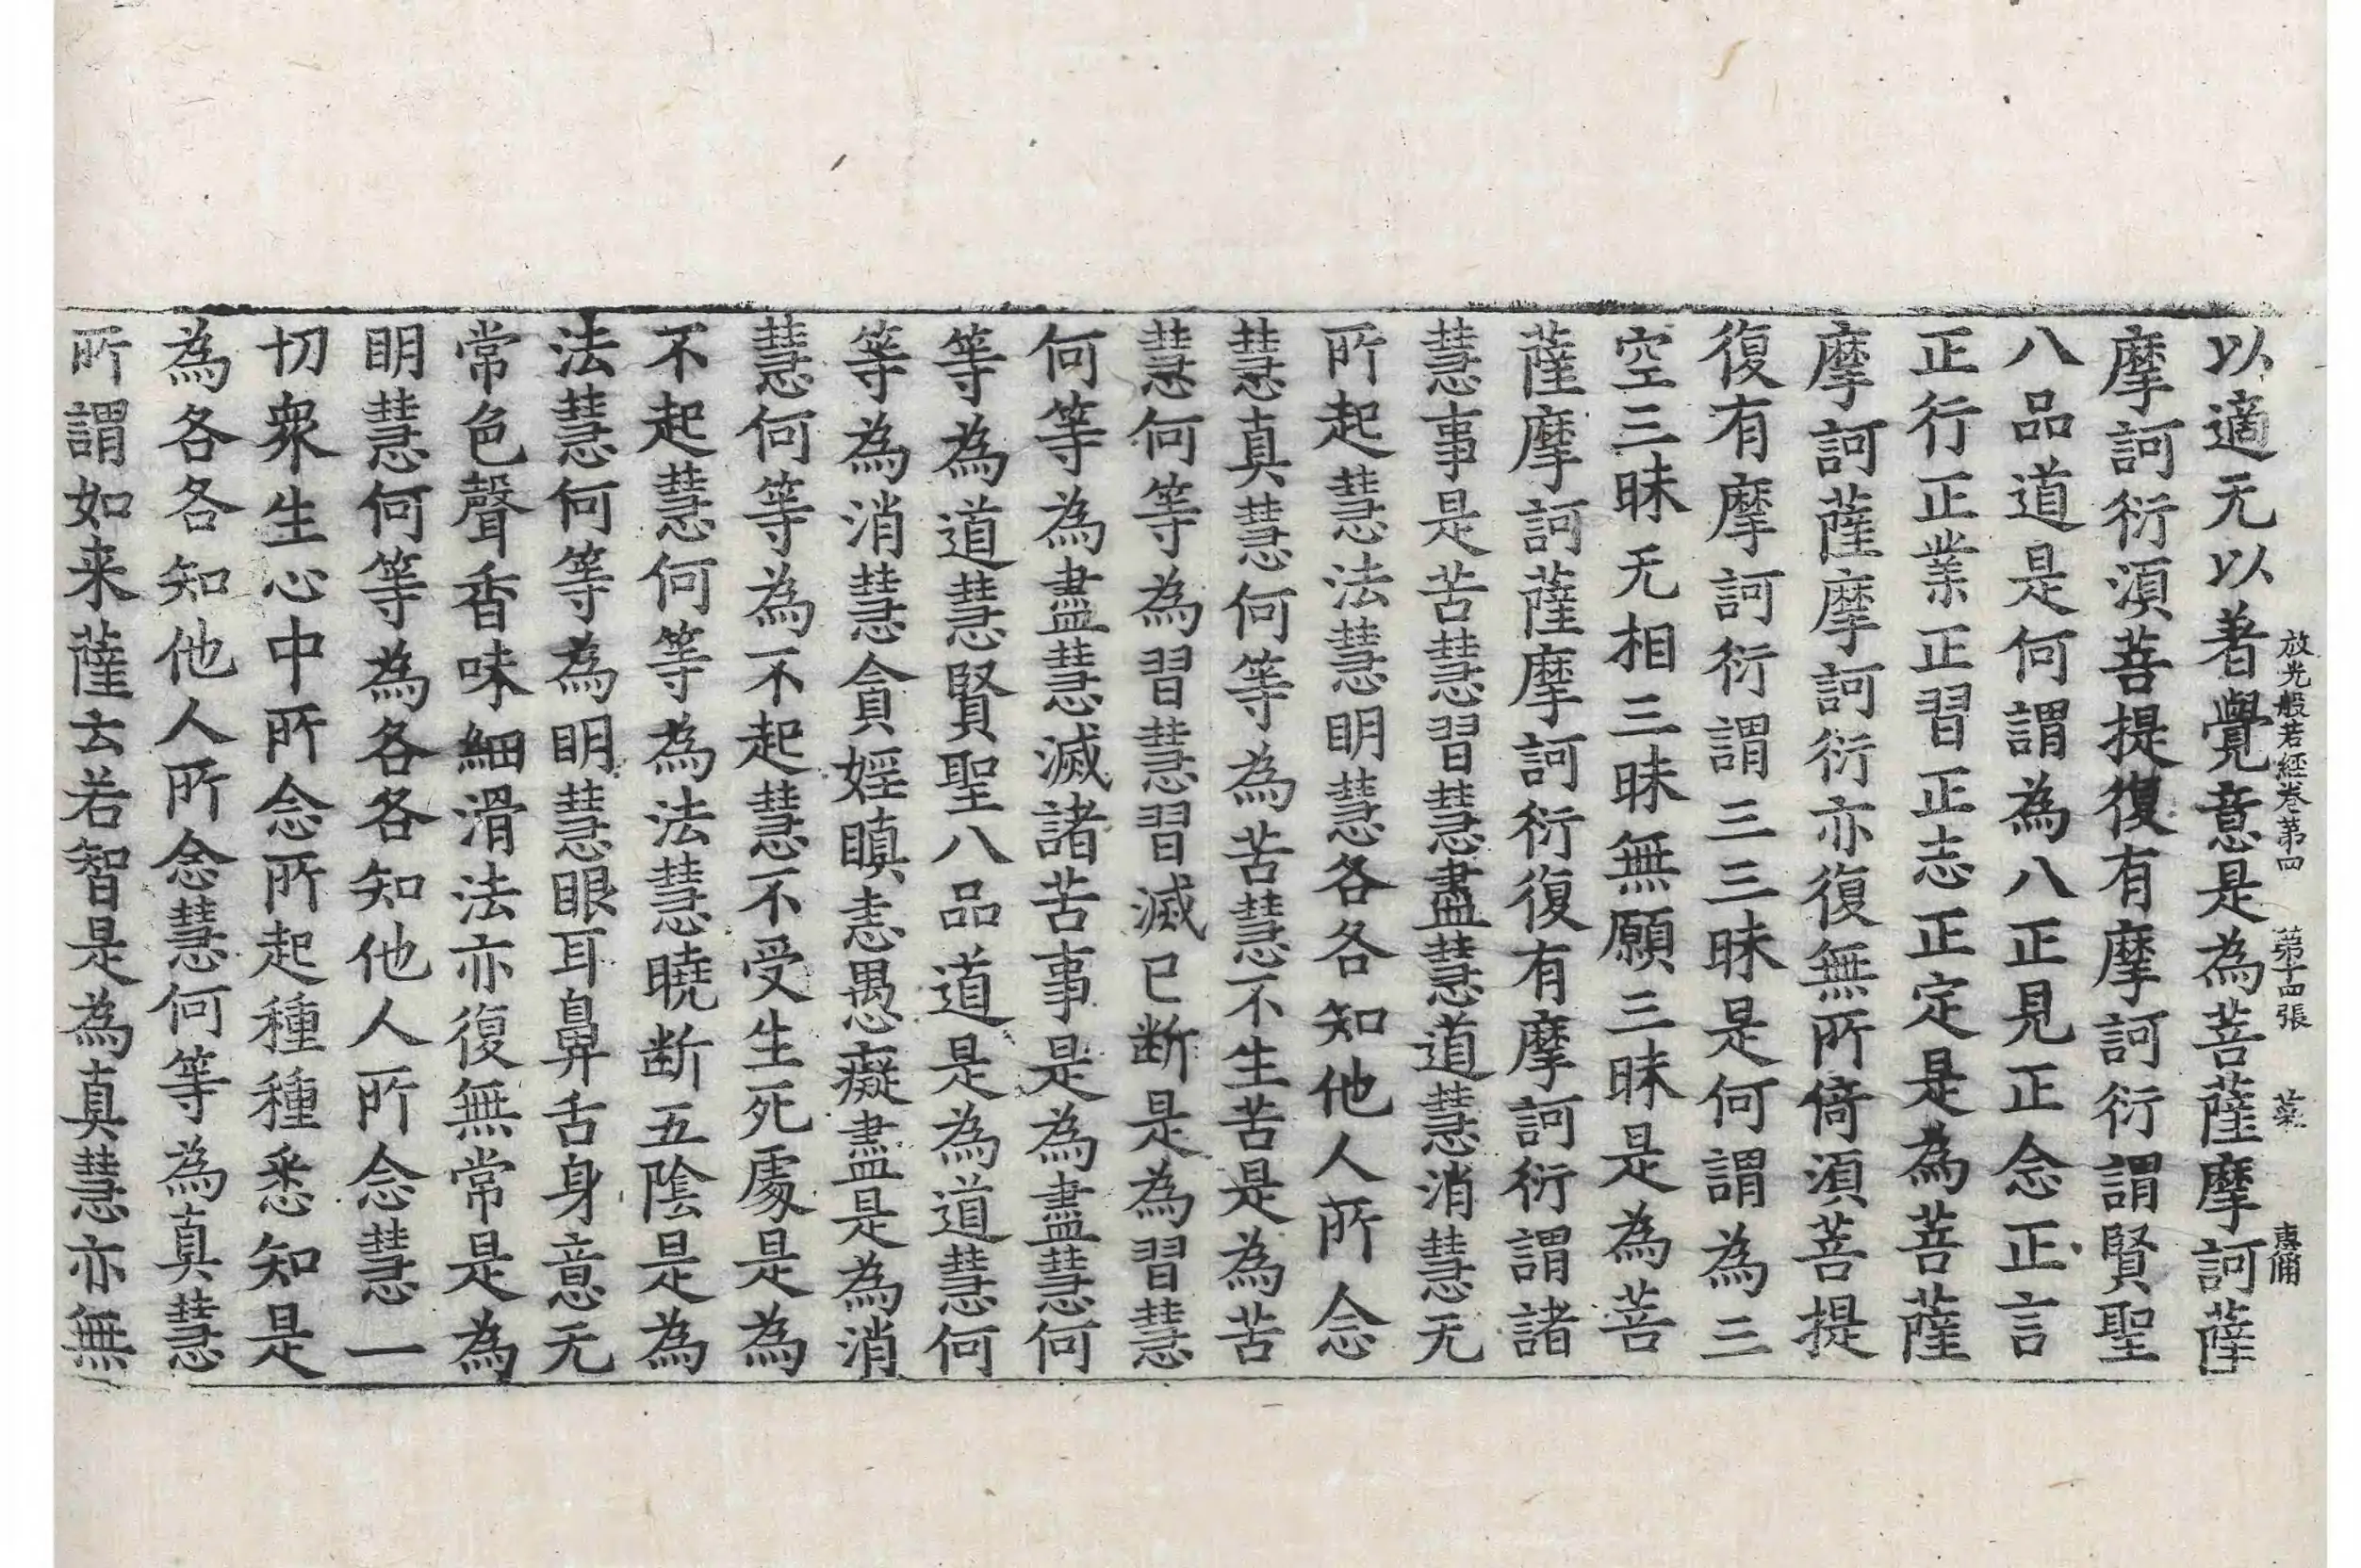 放光般若経卷第四 第十四張 菜
以適无以著覺意是為菩薩摩訶薩
摩訶衍湏菩提復有摩訶衍謂賢聖
八品道是何謂為八正見正念正言
正行正業正習正志正定是為菩薩
摩訶薩摩訶衍亦復無所倚湏菩提
復有摩訶衍謂三三昧是何謂為三
空三昧无相三昧無願三昧是為菩
薩摩訶薩摩訶衍復有摩訶衍謂諸
慧事是苦慧習慧盡慧道慧消慧无
所起慧法慧明慧各各知他人所念
慧真慧何等為苦慧不生苦是為苦
慧何等為習慧習滅已断是為習慧
何等為盡慧滅諸苦事是為盡慧何
等為道慧賢聖八品道是為道慧何
等為消慧貪婬瞋恚愚癡盡是為消
慧何等為不起慧不受生死處是為
不起慧何等為法慧曉断五陰是為
法慧何等為明慧眼耳鼻舌身意无
常色聲香味細滑法亦復無常是為
明慧何等為各各知他人所念慧一
切衆生心中所念所起種種悉知是
為各各知他人所念慧何等為真慧
所謂如来薩云若智是為真慧亦無